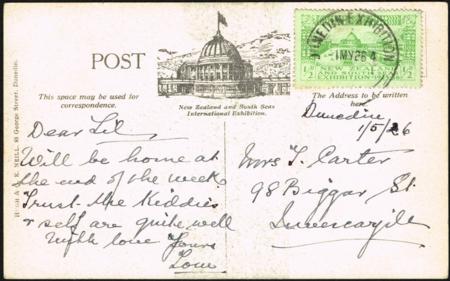 POST
This space may be used for
correspondence.
New Zealand and South Seas
International Exhibition.
The Address to be written
here.
HUGH & G. K. NEILL, 49 George Street, Dunedin.
DUNEDIN EXHIBITION
1MY26
NEW ZEALAND
AND SOUTH SEAS
EXHIBITION
½
½
Dunedin
1/5/26
Dear Lil
Will be home at
the end of the week
Trust the Kiddies
& self are quite well
With love Yours
Lou
Mrs T. Carter
98 Biggar St.
Invercargill